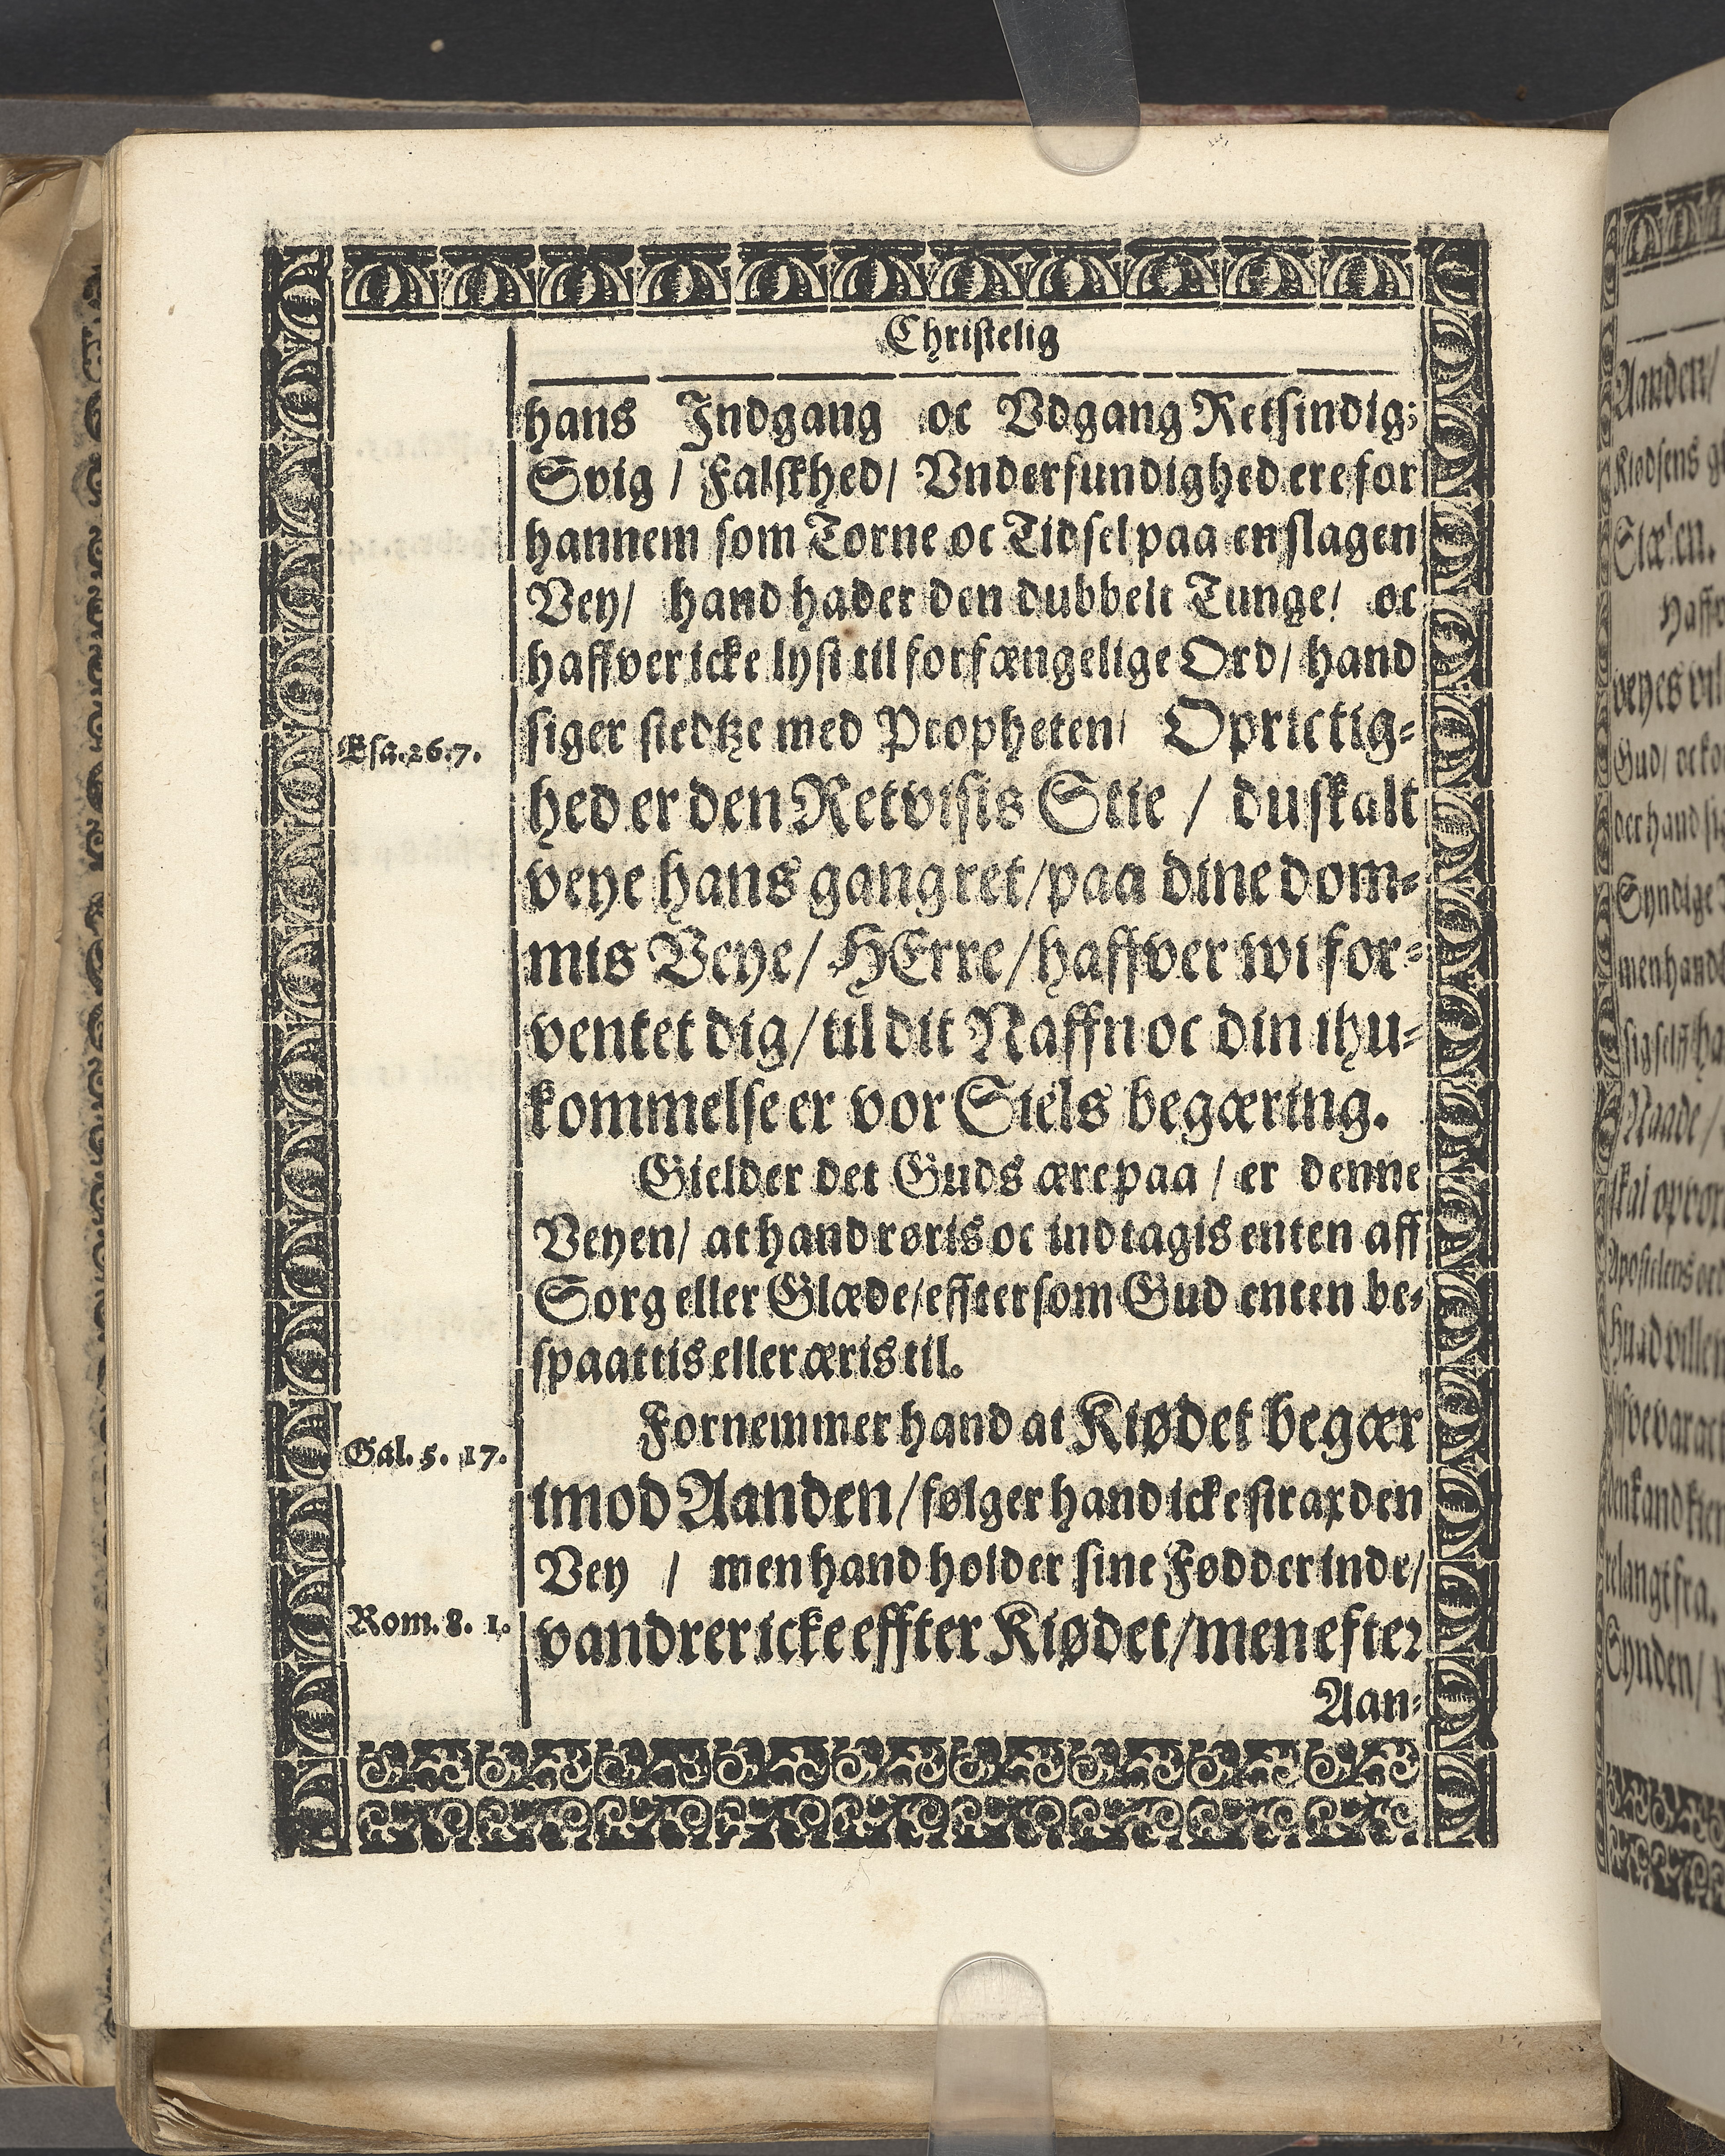 Christelig
hans Indgang oc Vdgang Retsindig;
Svig / Falskhed / Vnderfundighed ere for
hannem som Torne oc Tidsel paa en slagen
Vey / hand hader den dubbelt Tunge / oc
haffver icke lyst til forfængelige Ord / hand
siger stedtze med Propheten / Oprictig-
Esa. 26. 7.
hed er den Retvisis Stie / du skalt
veye hans gang ret / paa dine dom-
mis Veye / HErre / haffver wi for-
ventet dig / til dit Naffn oc din ihu-
kommelse er vor Siels begæring.
Gielder det Guds ære paa / er denne
Veyen / at hand røris oc indtagis enten aff
Sorg eller Glæde / effter som Gud enten be-
spaattis eller æris til.
Fornemmer hand at Kiødet begær
Gal. 5. 17.
imod Aanden / følger hand icke strax den
Vey / men hand holder sine Fødder inde /
Rom. 8. 1.
vandrer icke effter Kiødet / men efter
Aan-